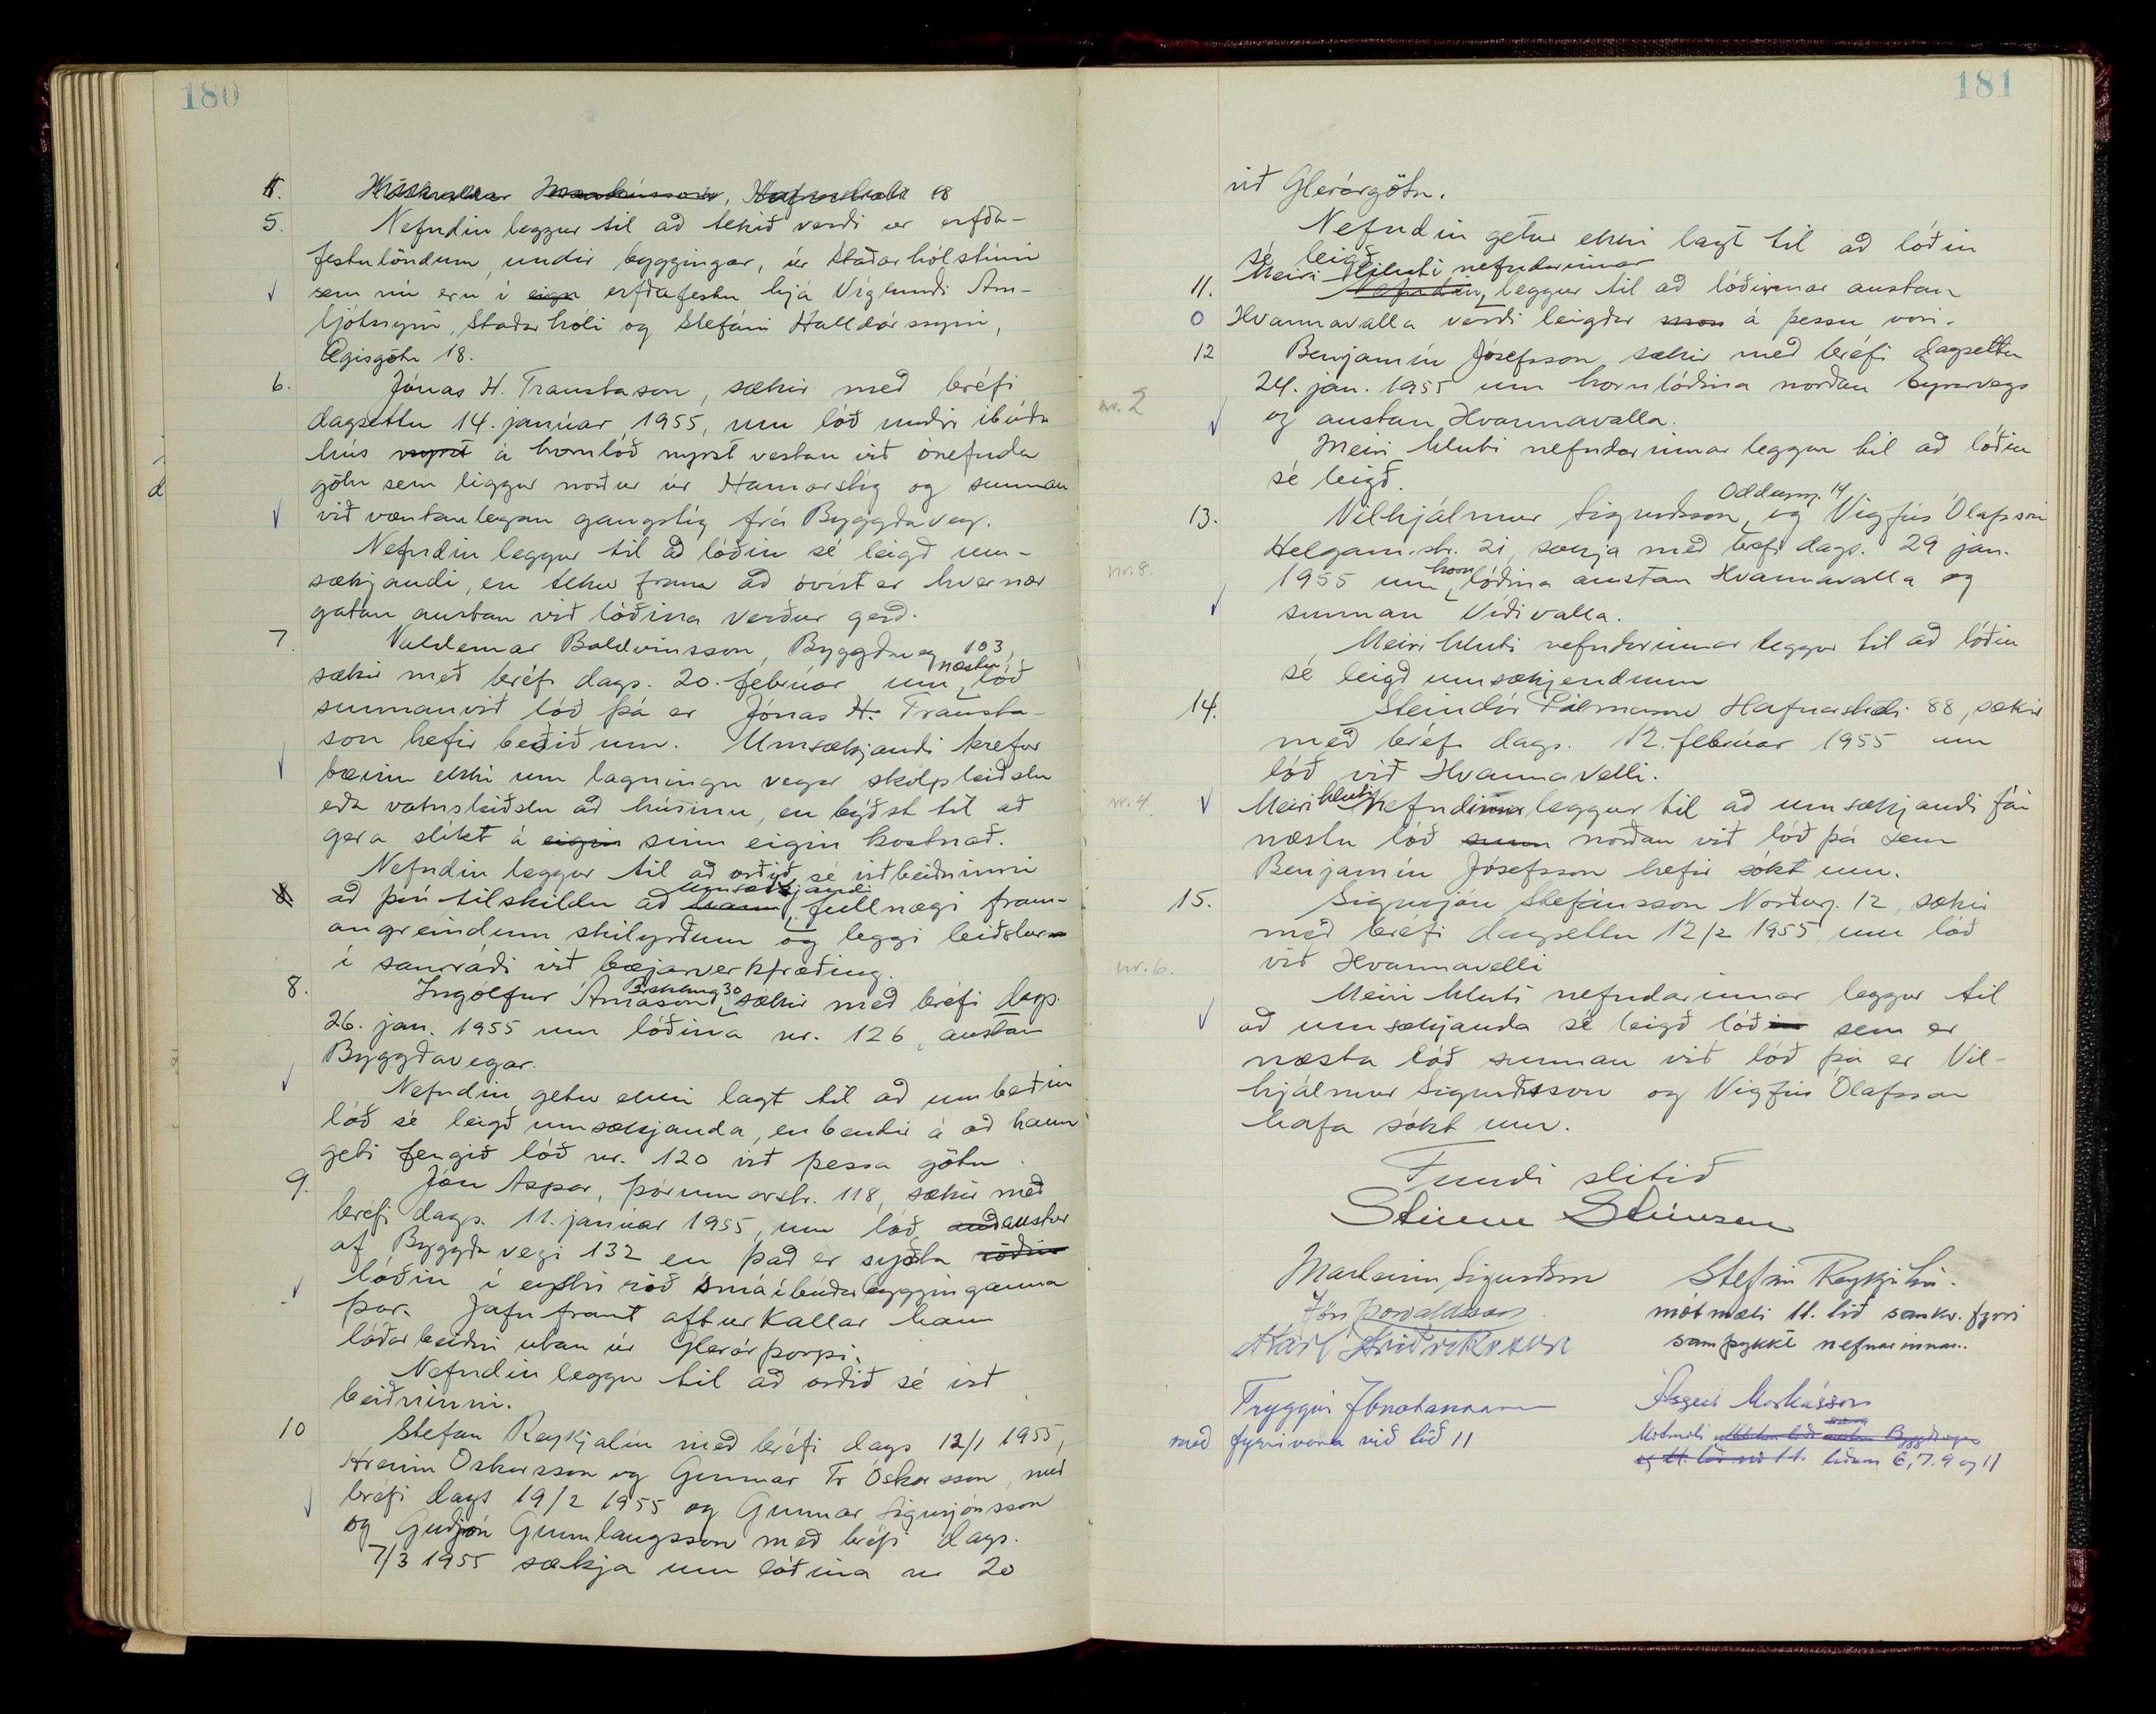 180
5.
Nefndin leggur til að tekið verði úr erfða-
festulöndum, undir byggingar, úr Staðarhólstúni
sem nú eru í eign erfðafestu hjá Víglundi Arn-
ljótssyni, Staðarhóli og Stefáni Halldórssyni,
Ægisgötu 18.
6.
Jónas H. Traustason, sækir með bréfi
dagsettu 14. janúar 1955, um lóð undir íbúða
hús nyrst á hornlóð nyrst vestan við ónefnda
götu sem liggur norður úr Hamarstíg og sunnan
við væntanlegan gangstíg frá Byggðaveg.
Nefndin leggur til að lóðin sé leigð um-
sækjandi, en tekur fram að óvíst er hvernær
gatan austan við lóðina verður gerð.
7.
Valdemar Baldvinsson, Byggðaveg 103,
sækir með bréfi dags. 20. febrúar um næstu lóð
sunnan við lóð þá er Jónas H. Trausta-
son hefir beðið um. Umsækjandi krefur
bæinn ekki um lagningu vegar skólpleiðslu
eða vatnsleiðslu að húsinu, en býðst til að
gera slíkt á eigin sinn eigin kostnað.
Nefndin leggur til að orðið sé við beiðninni
að því tilskildu að hann umsækjandi fullnægi fram-
angreindum skilyrðum og leggi leiðslur
í samráði við bæjarverkfræðing.
8.
Ingólfur Árnason, Brekkug 30 sækir með bréfi dags.
26. jan. 1955 um lóðina nr. 126, austan
Byggðavegar.
Nefndin getur ekki lagt til að umbeðin
lóð sé leigð umsækjanda, en bendir á að hann
geti fengið lóð nr. 120 við þessa götu.
9.
Jón Aspar, Þórunnarstr. 118, sækir með
bréfi dags. 11. janúar 1955, um lóð, austur
af Byggðavegi 132 en það er syðsta röðin
lóðin í eystri röð smáíbúðabygginganna
þar. Jafnframt afturkallar hann
lóðarbeiðni utan úr Glerárþorpi.
Nefndin leggur til að orðið sé við
beiðninni.
10
Stefán Reykjalín með bréfi dags 12/1 1955,
Hreinn Óskarsson og Gunnar Tr Óskarsson, með
bréfi dags 19/2 1955 og Gunnar Sigurjónsson
og Guðjón Gunnlaugsson með bréfi dags.
7/3 1955 sækja um lóðina nr 20
181
við Glerárgötu.
Nefndin getur ekki lagt til að lóðin
sé leigð.
11.
Meiri hluti nefndarinnar
Nefndin, leggur til að lóðirnar austan
Hvannavalla verði leigðar á þessu vori.
12
Benjamín Jósefsson, sækir með bréfi dagsettu
24. jan. 1955 um hornlóðina norðan Eyrarvegs
nr. 2
og austan Hvannavalla.
Meiri hluti nefndarinnar leggur til að lóðin
sé leigð.
13.
Vilhjálmur Sigurðsson, Oddagg. 14 og Vigfús Ólafsson
Helgam.str. 21, sækja með bréfi dags. 29 jan.
nr. 8.
1955 um horn lóðina austan Hvannavalla og
sunnan Víðivalla.
Meiri hluti nefndarinnar leggur til að lóðin
sé leigð umsækjendum
14.
Steindór Pálmason Hafnarstræti 88, sækir
með bréfi dags. 12. febrúar 1955 um
lóð við Hvannavelli.
nr. 4.
Meiri hluti Nefndarinnar leggur til að umsækjandi fái
næstu lóð sunn norðan við lóð þá sem
Benjamín Jósefsson hefir sókt um.
15.
Sigurjón Stefánsson Norðurg. 12, sækir
með bréfi dagsettu 12/2 1955, um lóð
við Hvannavelli
nr. 6.
Meiri hluti nefndarinnar leggur til
að umsækjanda sé leigð lóðin sem er
næsta lóð sunnan við lóð þá er Vil-
hjálmur Sigurðsson og Vigfús Ólafsson
hafa sókt um.
Fundi slitið
Steinn Steinsen
Marteinn Sigurðsson
Stefán Reykjalín.
Jón Þorvaldsson
mótmæli 11. lið sankv. fyrri
Karl Friðriksson
samþykkt nefnarinnar.
Tryggvi Jónatansson
með fyrirvara við lið 11
Ásgeir Markússon
Mótmæli
liðum 6, 7. 9 og 11